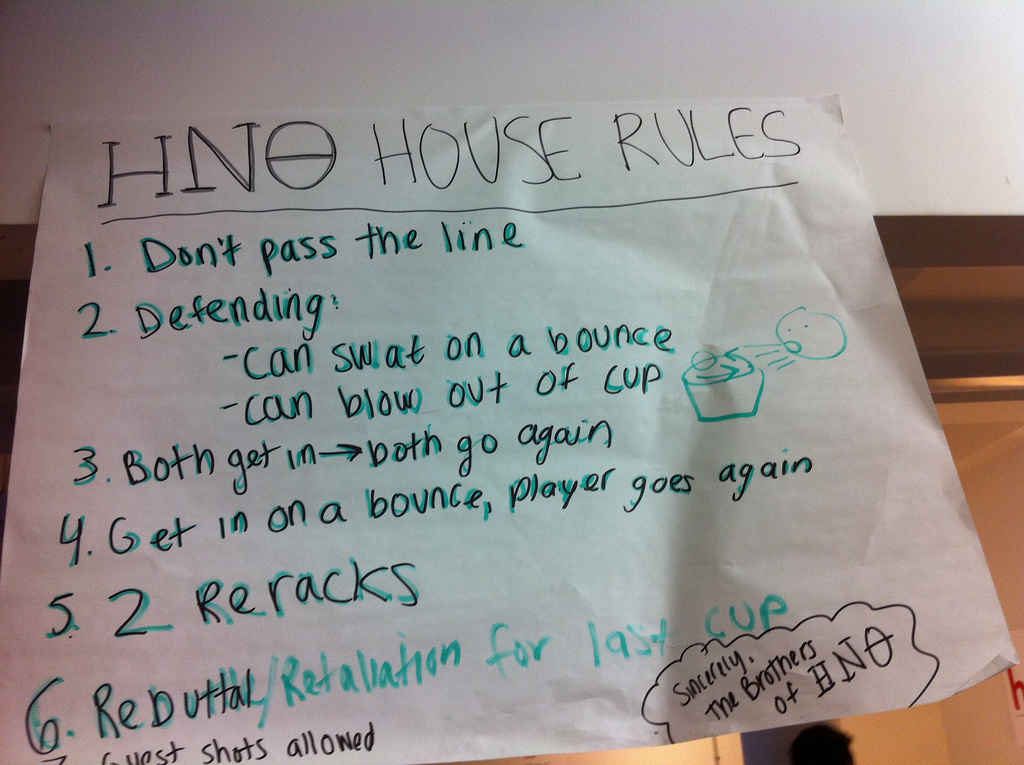 HNΘ HOUSE RULES
1. Don't pass the line
2. Defending:
-can swat on a bounce
-can blow out of cup
3. Both get in→both go again
4. Get in on a bounce, player goes again
5. 2 Reracks
6. Rebuttal/Retaliation for last cup
7. Guest shots allowed
Sincerely,
The Brothers
of HNΘ